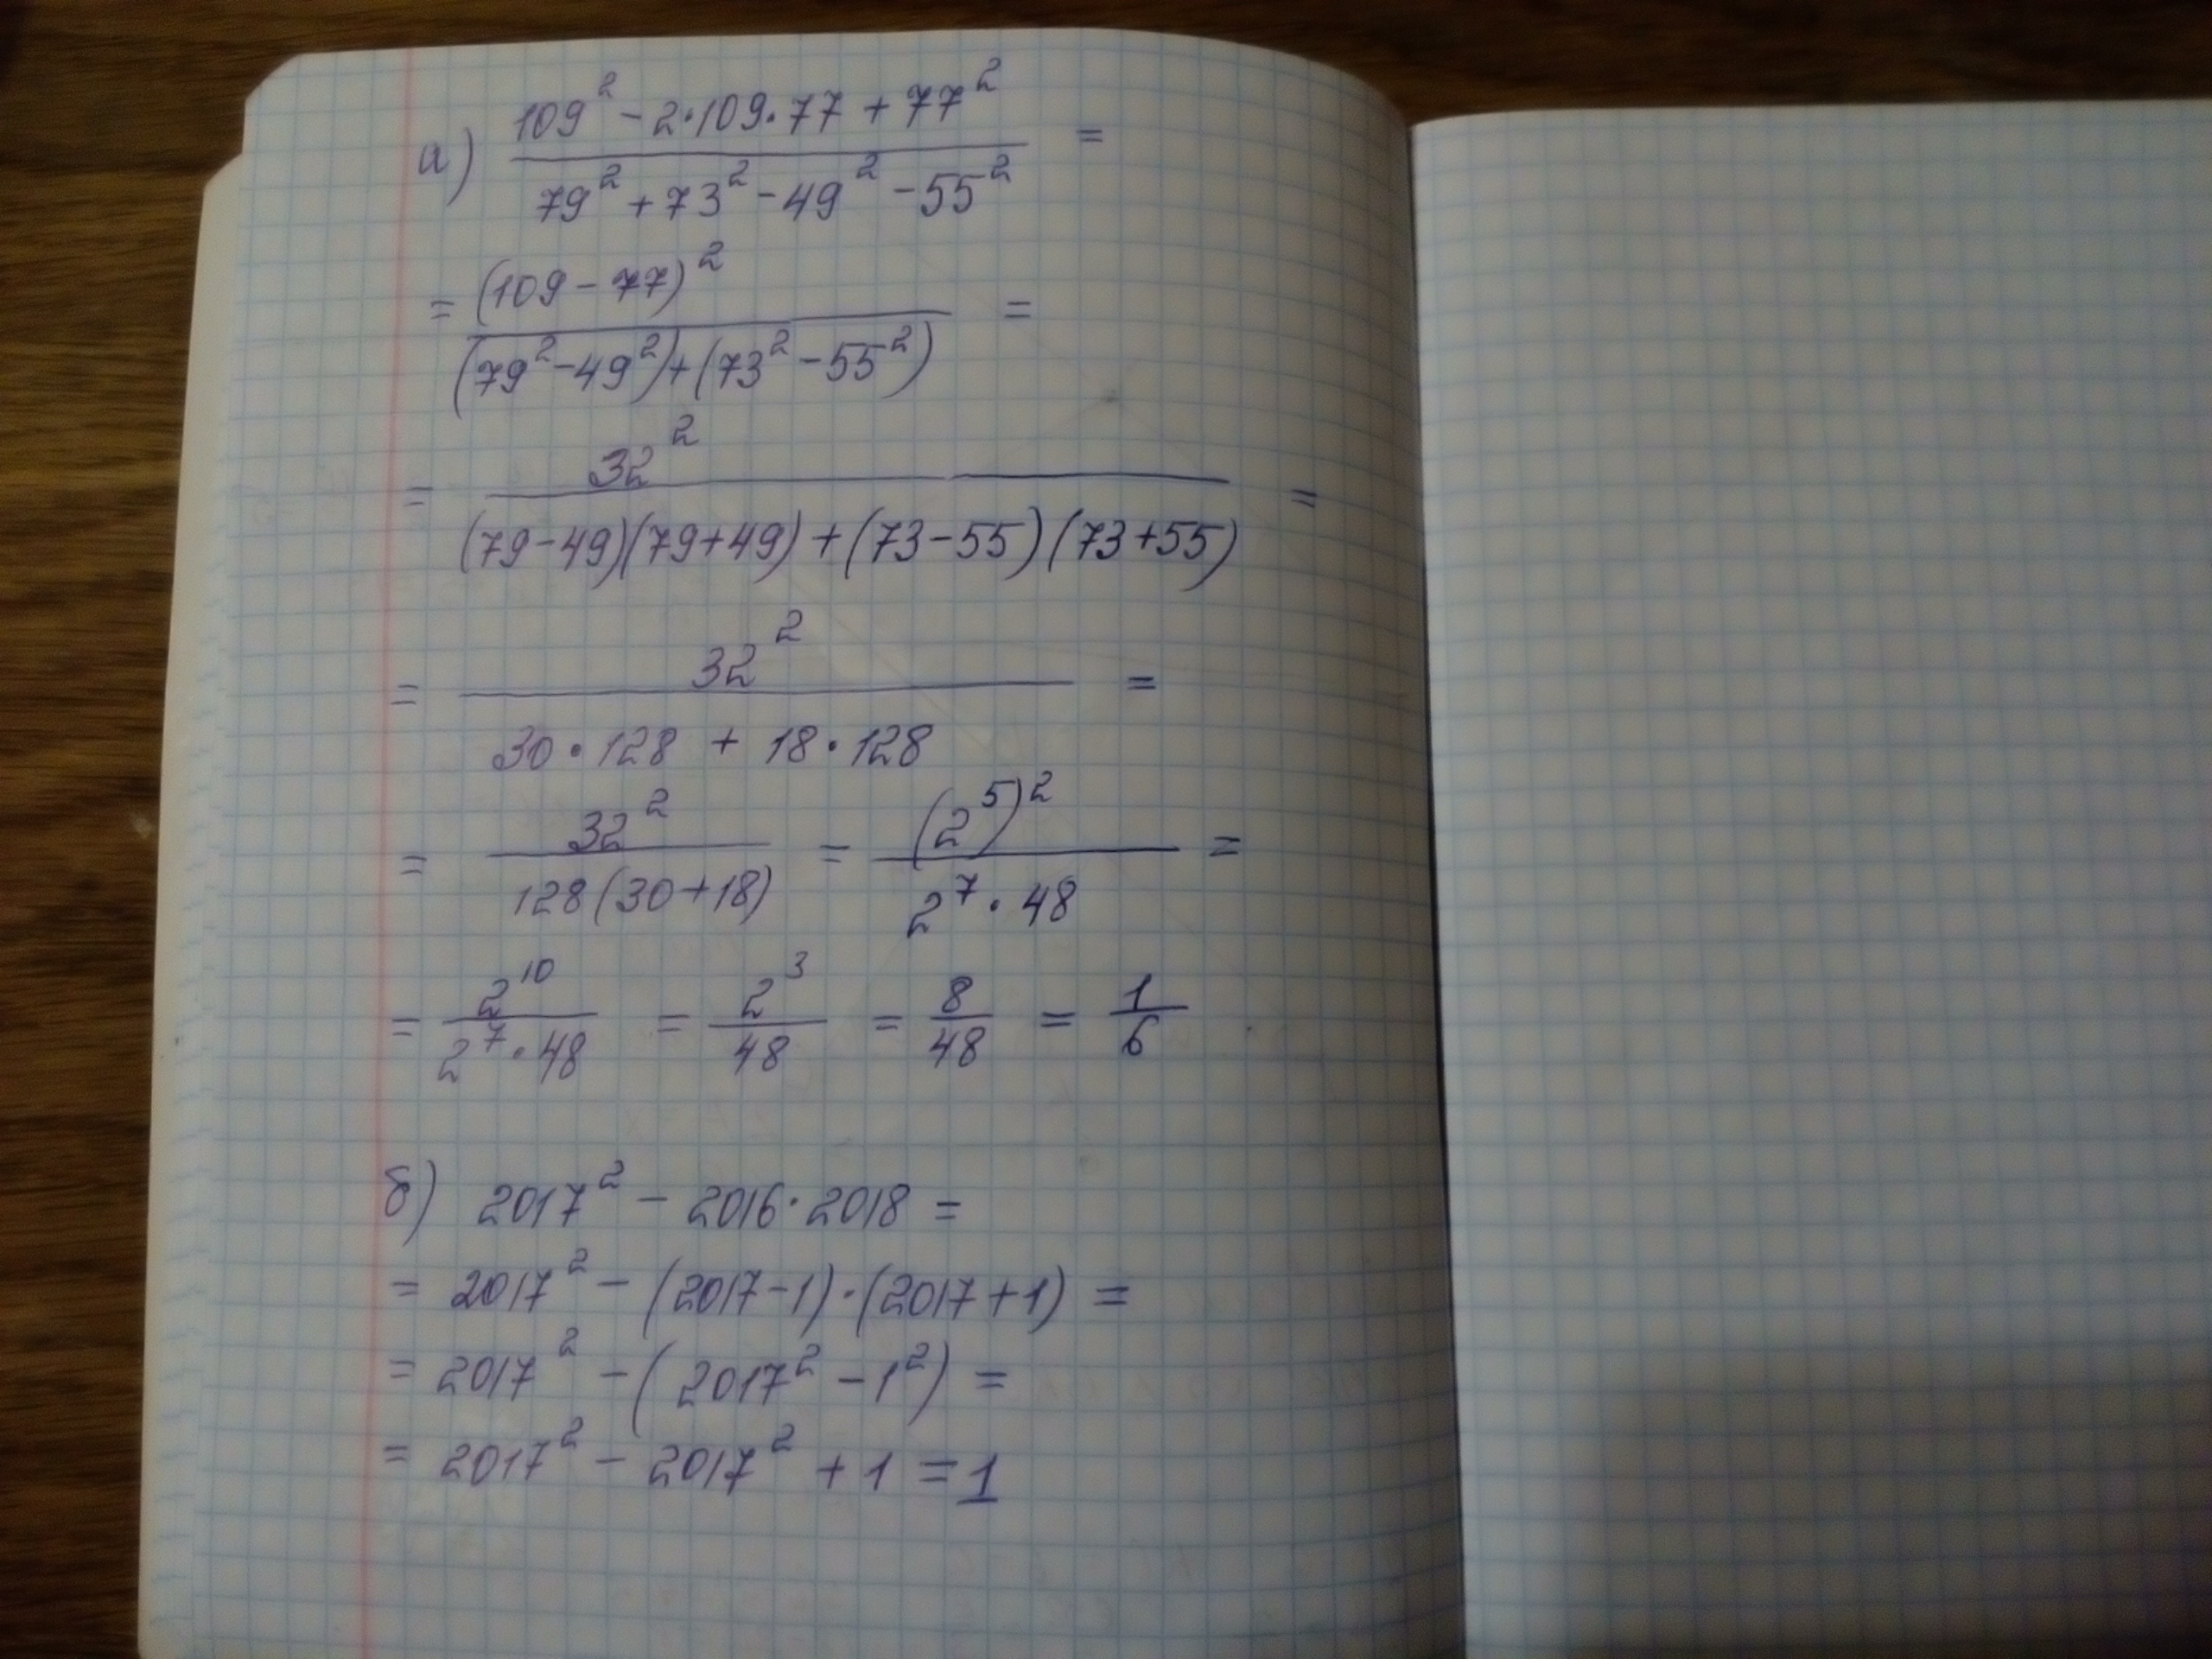 а) (109² - 2·109·77 + 77²)/(79² + 73² - 49² - 55²) =
= (109 - 77)²/((79² - 49²) + (73² - 55²)) =
= 32²/((79 - 49)(79 + 49) + (73 - 55)(73 + 55)) =
= 32²/(30·128 + 18·128) =
= 32²/(128(30 + 18)) = (2⁵)²/(2⁷·48) =
= 2¹⁰/(2⁷·48) = 2³/48 = 8/48 = 1/6
б) 2017² - 2016·2018 =
= 2017² - (2017 - 1)·(2017 + 1) =
= 2017² - (2017² - 1²) =
= 2017² - 2017² + 1 = 1